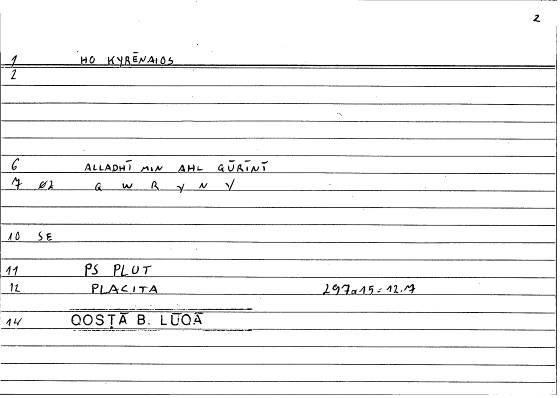 2
1 HO KYRĒNAIOS
2
6 ALLADHĪ MIN AHL QŪRĪNĪ
7 02 Q W R Y N Y
10 SE
11 PS PLUT
12 PLACITA 297a15 = 12.7
14 QOSṬĀ B. LŪQĀ